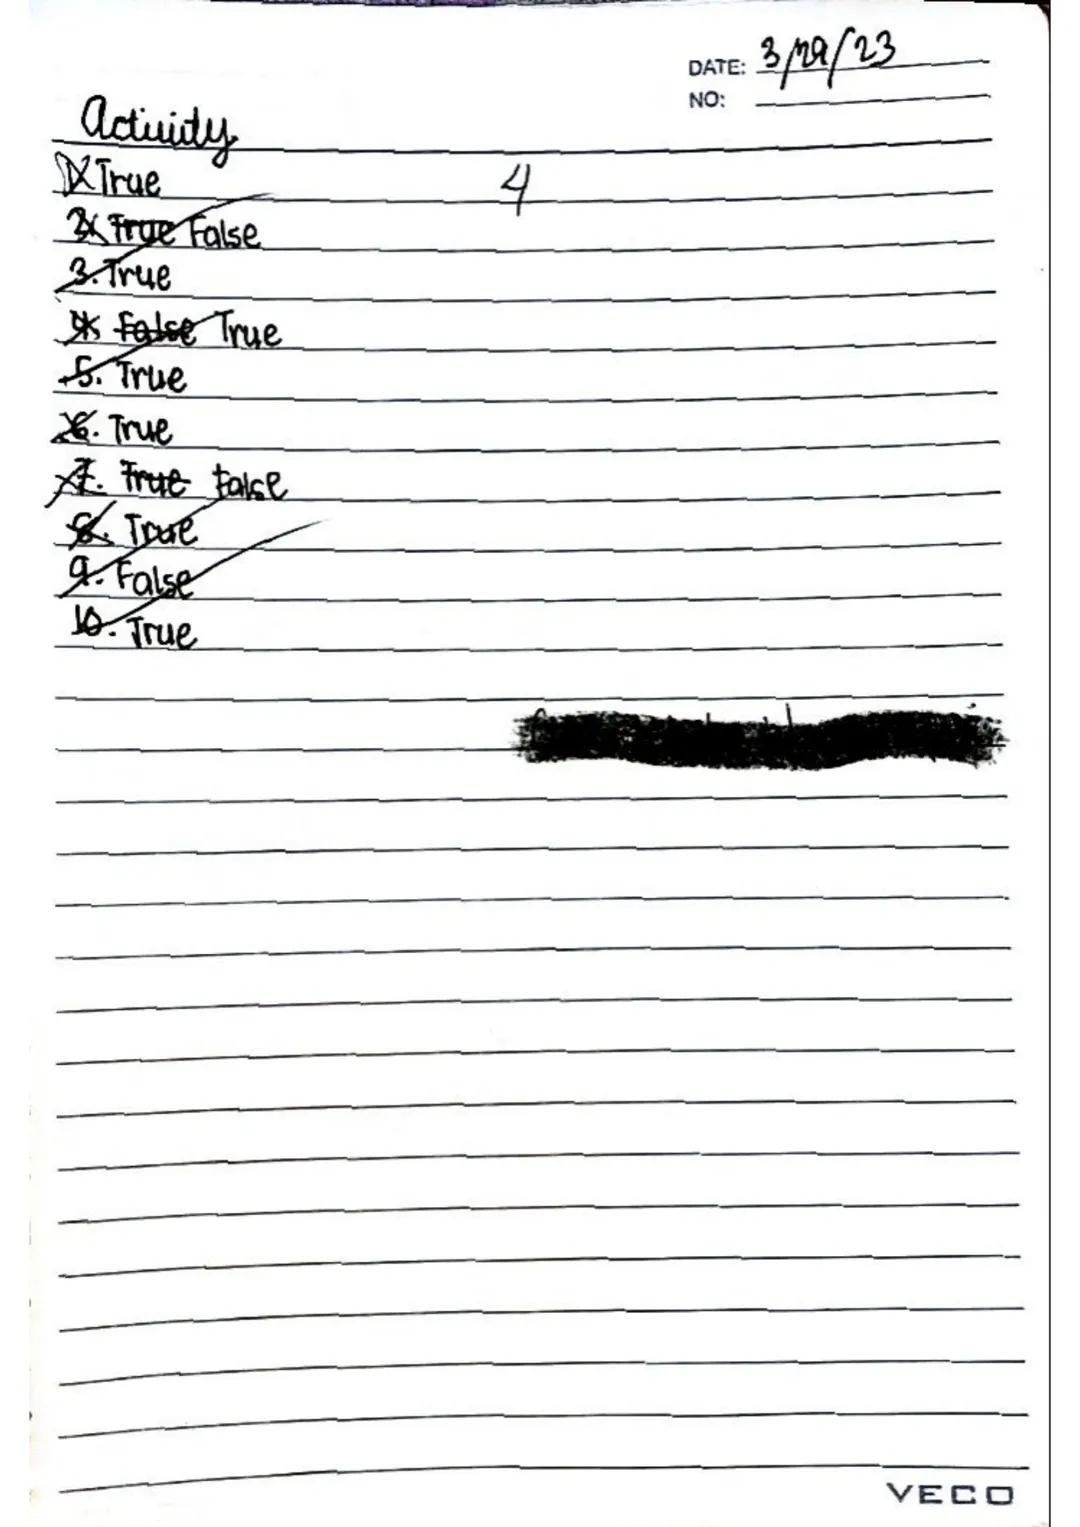 DATE: 3/29/23
NO:
Activity
1. True
4
2. True False
3. True
4. False True
5. True
6. True
7. True False
8. True
9. False
10. True
VECO